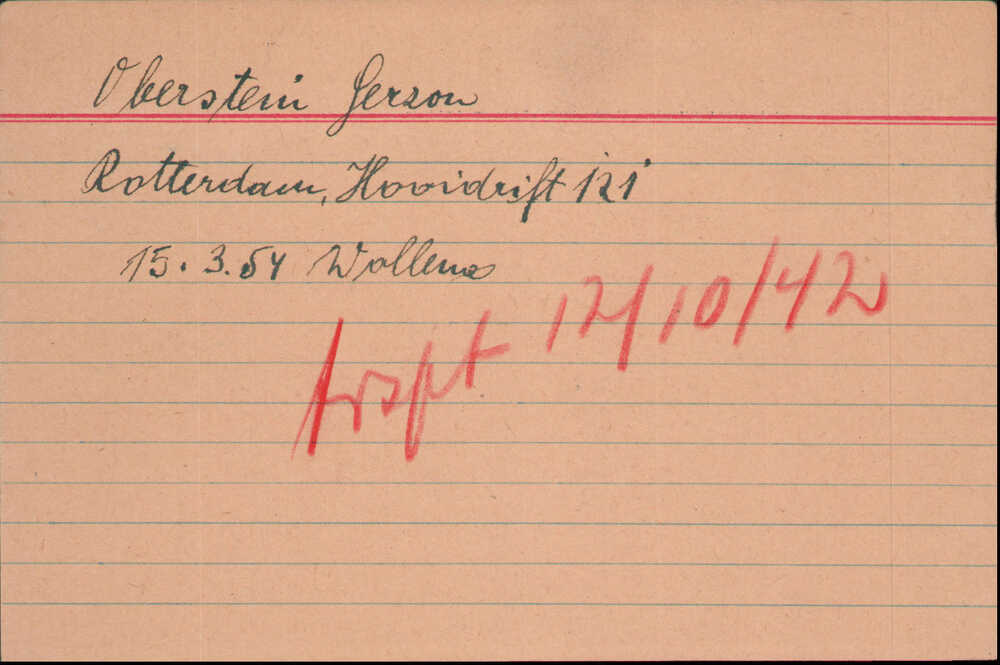 Oberstein Gerzon
Rotterdam, Hooidrift 121
15.3.54 Wollema
trspt 12/10/42